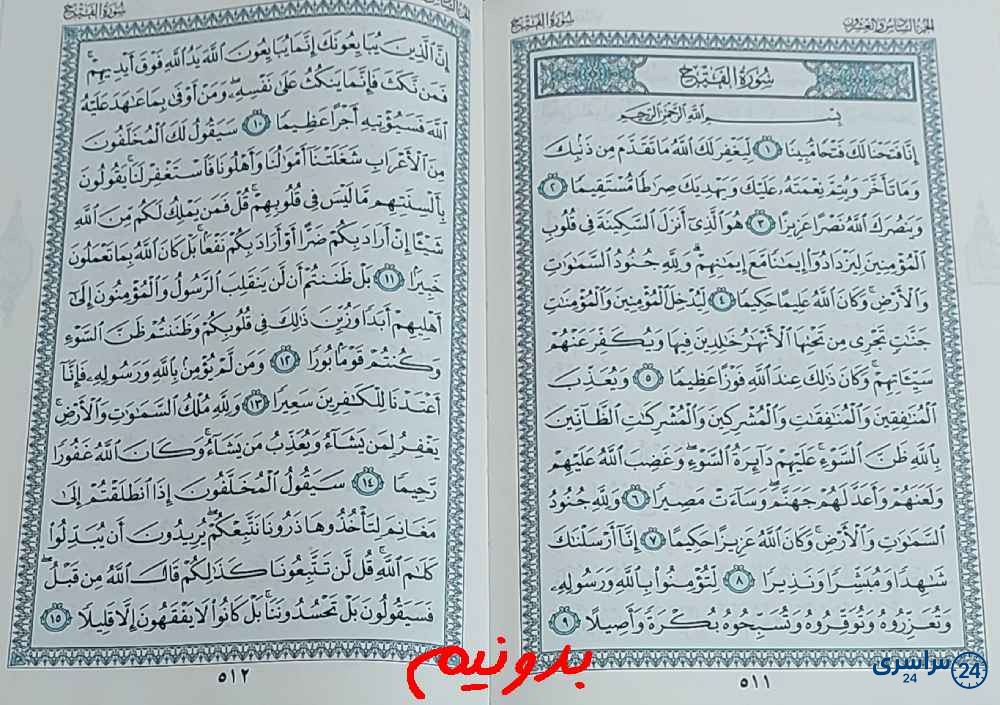 الجزء السادس والعشرون
سورة الفتح
سُورَةُ الفَتْحِ
بِسْمِ ٱللَّهِ ٱلرَّحْمَٰنِ ٱلرَّحِيمِ
إِنَّا فَتَحْنَا لَكَ فَتْحًا مُّبِينًا ١ لِّيَغْفِرَ لَكَ ٱللَّهُ مَا تَقَدَّمَ مِن ذَنۢبِكَ
وَمَا تَأَخَّرَ وَيُتِمَّ نِعْمَتَهُۥ عَلَيْكَ وَيَهْدِيَكَ صِرَٰطًا مُّسْتَقِيمًا ٢
وَيَنصُرَكَ ٱللَّهُ نَصْرًا عَزِيزًا ٣ هُوَ ٱلَّذِىٓ أَنزَلَ ٱلسَّكِينَةَ فِى قُلُوبِ
ٱلْمُؤْمِنِينَ لِيَزْدَادُوٓا۟ إِيمَٰنًا مَّعَ إِيمَٰنِهِمْ ۗ وَلِلَّهِ جُنُودُ ٱلسَّمَٰوَٰتِ
وَٱلْأَرْضِ ۚ وَكَانَ ٱللَّهُ عَلِيمًا حَكِيمًا ٤ لِّيُدْخِلَ ٱلْمُؤْمِنِينَ وَٱلْمُؤْمِنَٰتِ
جَنَّٰتٍ تَجْرِى مِن تَحْتِهَا ٱلْأَنْهَٰرُ خَٰلِدِينَ فِيهَا وَيُكَفِّرَ عَنْهُمْ
سَيِّـَٔاتِهِمْ ۚ وَكَانَ ذَٰلِكَ عِندَ ٱللَّهِ فَوْزًا عَظِيمًا ٥ وَيُعَذِّبَ
ٱلْمُنَٰفِقِينَ وَٱلْمُنَٰفِقَٰتِ وَٱلْمُشْرِكِينَ وَٱلْمُشْرِكَٰتِ ٱلظَّآنِّينَ
بِٱللَّهِ ظَنَّ ٱلسَّوْءِ ۚ عَلَيْهِمْ دَآئِرَةُ ٱلسَّوْءِ ۖ وَغَضِبَ ٱللَّهُ عَلَيْهِمْ
وَلَعَنَهُمْ وَأَعَدَّ لَهُمْ جَهَنَّمَ ۖ وَسَآءَتْ مَصِيرًا ٦ وَلِلَّهِ جُنُودُ
ٱلسَّمَٰوَٰتِ وَٱلْأَرْضِ ۚ وَكَانَ ٱللَّهُ عَزِيزًا حَكِيمًا ٧ إِنَّآ أَرْسَلْنَٰكَ
شَٰهِدًا وَمُبَشِّرًا وَنَذِيرًا ٨ لِّتُؤْمِنُوا۟ بِٱللَّهِ وَرَسُولِهِۦ
وَتُعَزِّرُوهُ وَتُوَقِّرُوهُ وَتُسَبِّحُوهُ بُكْرَةً وَأَصِيلًا ٩
٥١١
سورة الفتح
إِنَّ ٱلَّذِينَ يُبَايِعُونَكَ إِنَّمَا يُبَايِعُونَ ٱللَّهَ يَدُ ٱللَّهِ فَوْقَ أَيْدِيهِمْ ۚ
فَمَن نَّكَثَ فَإِنَّمَا يَنكُثُ عَلَىٰ نَفْسِهِۦ ۖ وَمَنْ أَوْفَىٰ بِمَا عَٰهَدَ عَلَيْهُ
ٱللَّهَ فَسَيُؤْتِيهِ أَجْرًا عَظِيمًا ١٠ سَيَقُولُ لَكَ ٱلْمُخَلَّفُونَ
مِنَ ٱلْأَعْرَابِ شَغَلَتْنَآ أَمْوَٰلُنَا وَأَهْلُونَا فَٱسْتَغْفِرْ لَنَا ۚ يَقُولُونَ
بِأَلْسِنَتِهِم مَّا لَيْسَ فِى قُلُوبِهِمْ ۚ قُلْ فَمَن يَمْلِكُ لَكُم مِّنَ ٱللَّهِ
شَيْـًٔا إِنْ أَرَادَ بِكُمْ ضَرًّا أَوْ أَرَادَ بِكُمْ نَفْعًۢا ۚ بَلْ كَانَ ٱللَّهُ بِمَا تَعْمَلُونَ
خَبِيرًۢا ١١ بَلْ ظَنَنتُمْ أَن لَّن يَنقَلِبَ ٱلرَّسُولُ وَٱلْمُؤْمِنُونَ إِلَىٰٓ
أَهْلِيهِمْ أَبَدًا وَزُيِّنَ ذَٰلِكَ فِى قُلُوبِكُمْ وَظَنَنتُمْ ظَنَّ ٱلسَّوْءِ
وَكُنتُمْ قَوْمًۢا بُورًا ١٢ وَمَن لَّمْ يُؤْمِنۢ بِٱللَّهِ وَرَسُولِهِۦ فَإِنَّآ
أَعْتَدْنَا لِلْكَٰفِرِينَ سَعِيرًا ١٣ وَلِلَّهِ مُلْكُ ٱلسَّمَٰوَٰتِ وَٱلْأَرْضِ ۚ
يَغْفِرُ لِمَن يَشَآءُ وَيُعَذِّبُ مَن يَشَآءُ ۚ وَكَانَ ٱللَّهُ غَفُورًا
رَّحِيمًا ١٤ سَيَقُولُ ٱلْمُخَلَّفُونَ إِذَا ٱنطَلَقْتُمْ إِلَىٰ
مَغَانِمَ لِتَأْخُذُوهَا ذَرُونَا نَتَّبِعْكُمْ ۖ يُرِيدُونَ أَن يُبَدِّلُوا۟
كَلَٰمَ ٱللَّهِ ۚ قُل لَّن تَتَّبِعُونَا كَذَٰلِكُمْ قَالَ ٱللَّهُ مِن قَبْلُ ۖ
فَسَيَقُولُونَ بَلْ تَحْسُدُونَنَا ۚ بَلْ كَانُوا۟ لَا يَفْقَهُونَ إِلَّا قَلِيلًا ١٥
٥١٢
بدونیم
سراسری
24
24